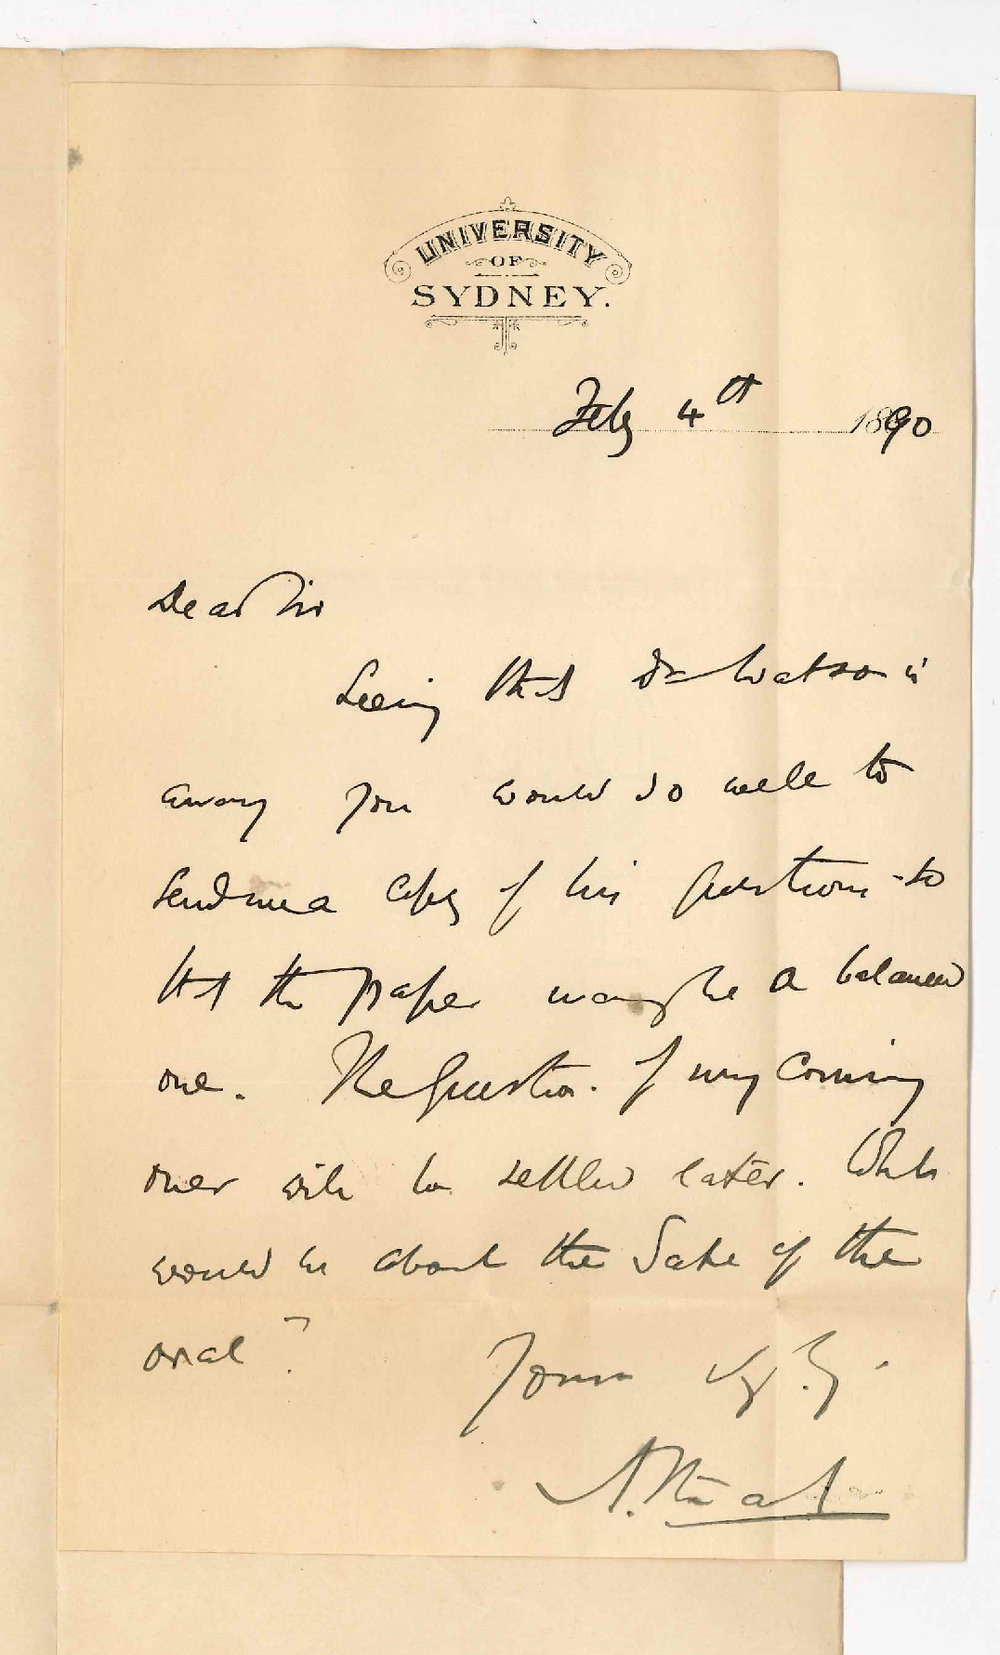 UNIVERSITY
OF
SYDNEY.
Feby 4th 1890
Dear Sir
Seeing that Dr Watson is
away you would do well to
send me a copy of his questions so
that the paper may be a balanced
one. The question of my coming
over will be settled later. What
would be about the date of the
oral?
Yours
A. Stuart